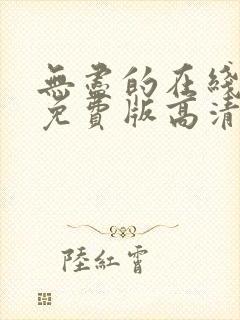 無盡的在綫
免費版高清
陸紅霄